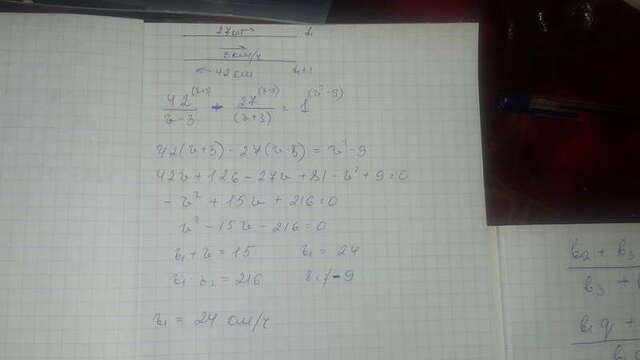 27 км →
3 км/ч
← 42 км
42^(v+3)/(v-3) - 27^(v-3)/(v+3) = 1^(v²-9)
42(v+3) - 27(v-3) = v² - 9
42v + 126 - 27v + 81 - v² + 9 = 0
- v² + 15v + 216 = 0
v² - 15v - 216 = 0
v₁ + v = 15 v₁ = 24
v₁ v₂ = 216 v₂ ≠ -9
v₁ = 24 км/ч
b₂ + b₃
b₃ +
b₁q +